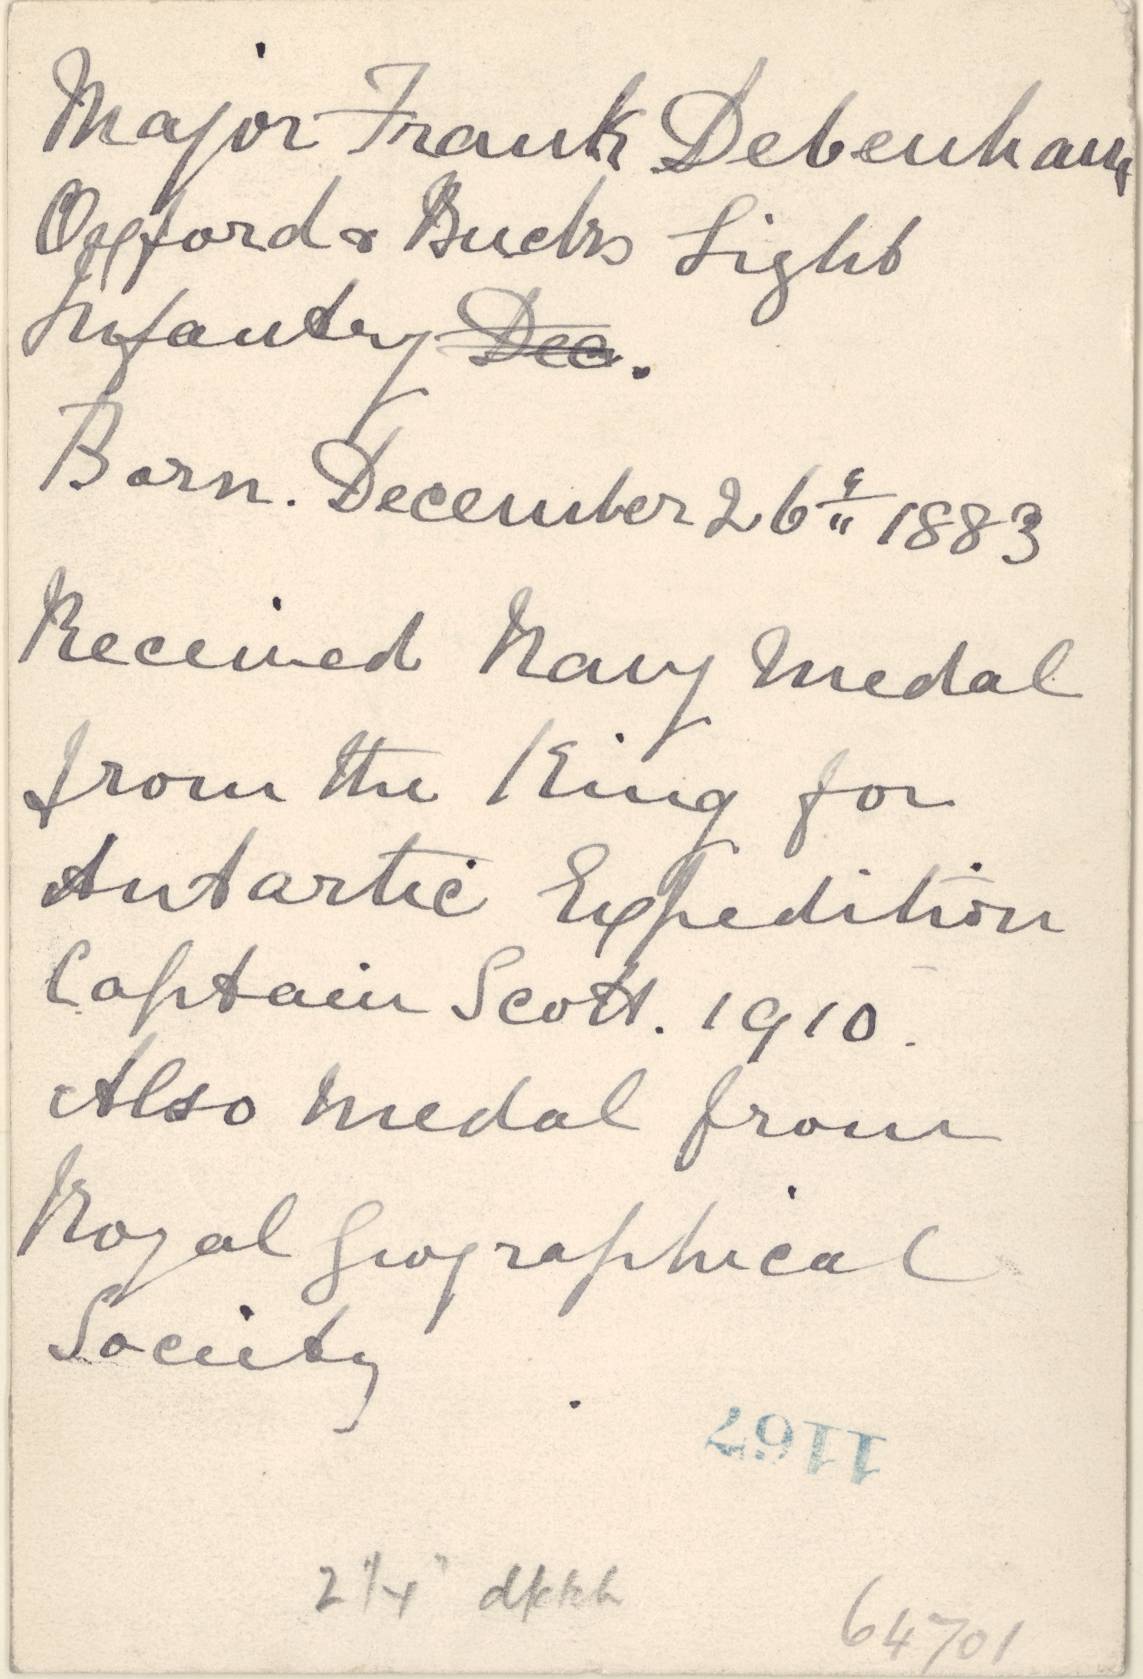 Major Frank Debenham
Oxford & Bucks Light
Infantry Dec.
Born. December 26th 1883
Received Navy Medal
from the King for
Antartic Expedition
Captain Scott. 1910.
Also Medal from
Royal Geographical
Society
1167
2 1/4"
64701